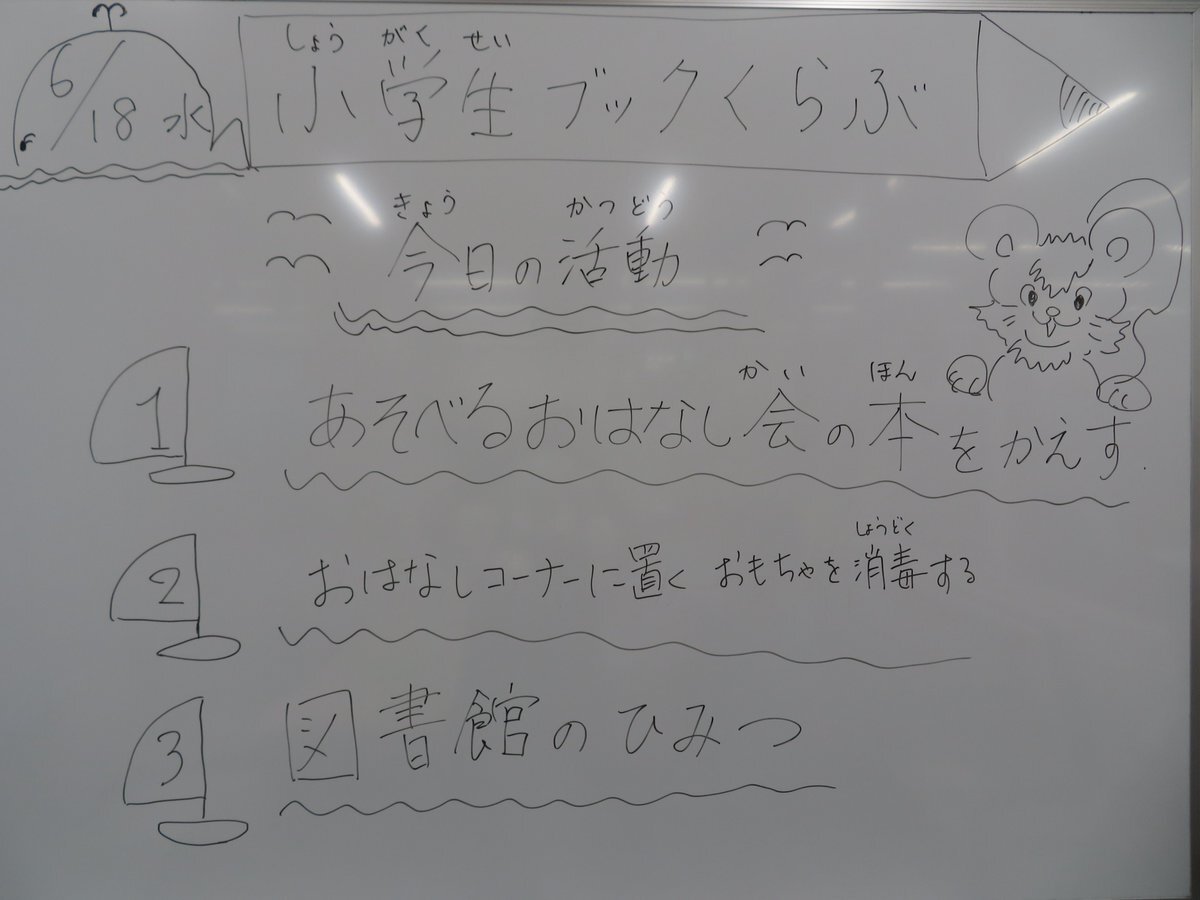 6/18 水
しょう がく せい
小学生ブックくらぶ
きょう かつどう
今日の活動
かい ほん
1 あそべるおはなし会の本をかえす.
しょうどく
2 おはなしコーナーに置く おもちゃを消毒する
3 図書館のひみつ